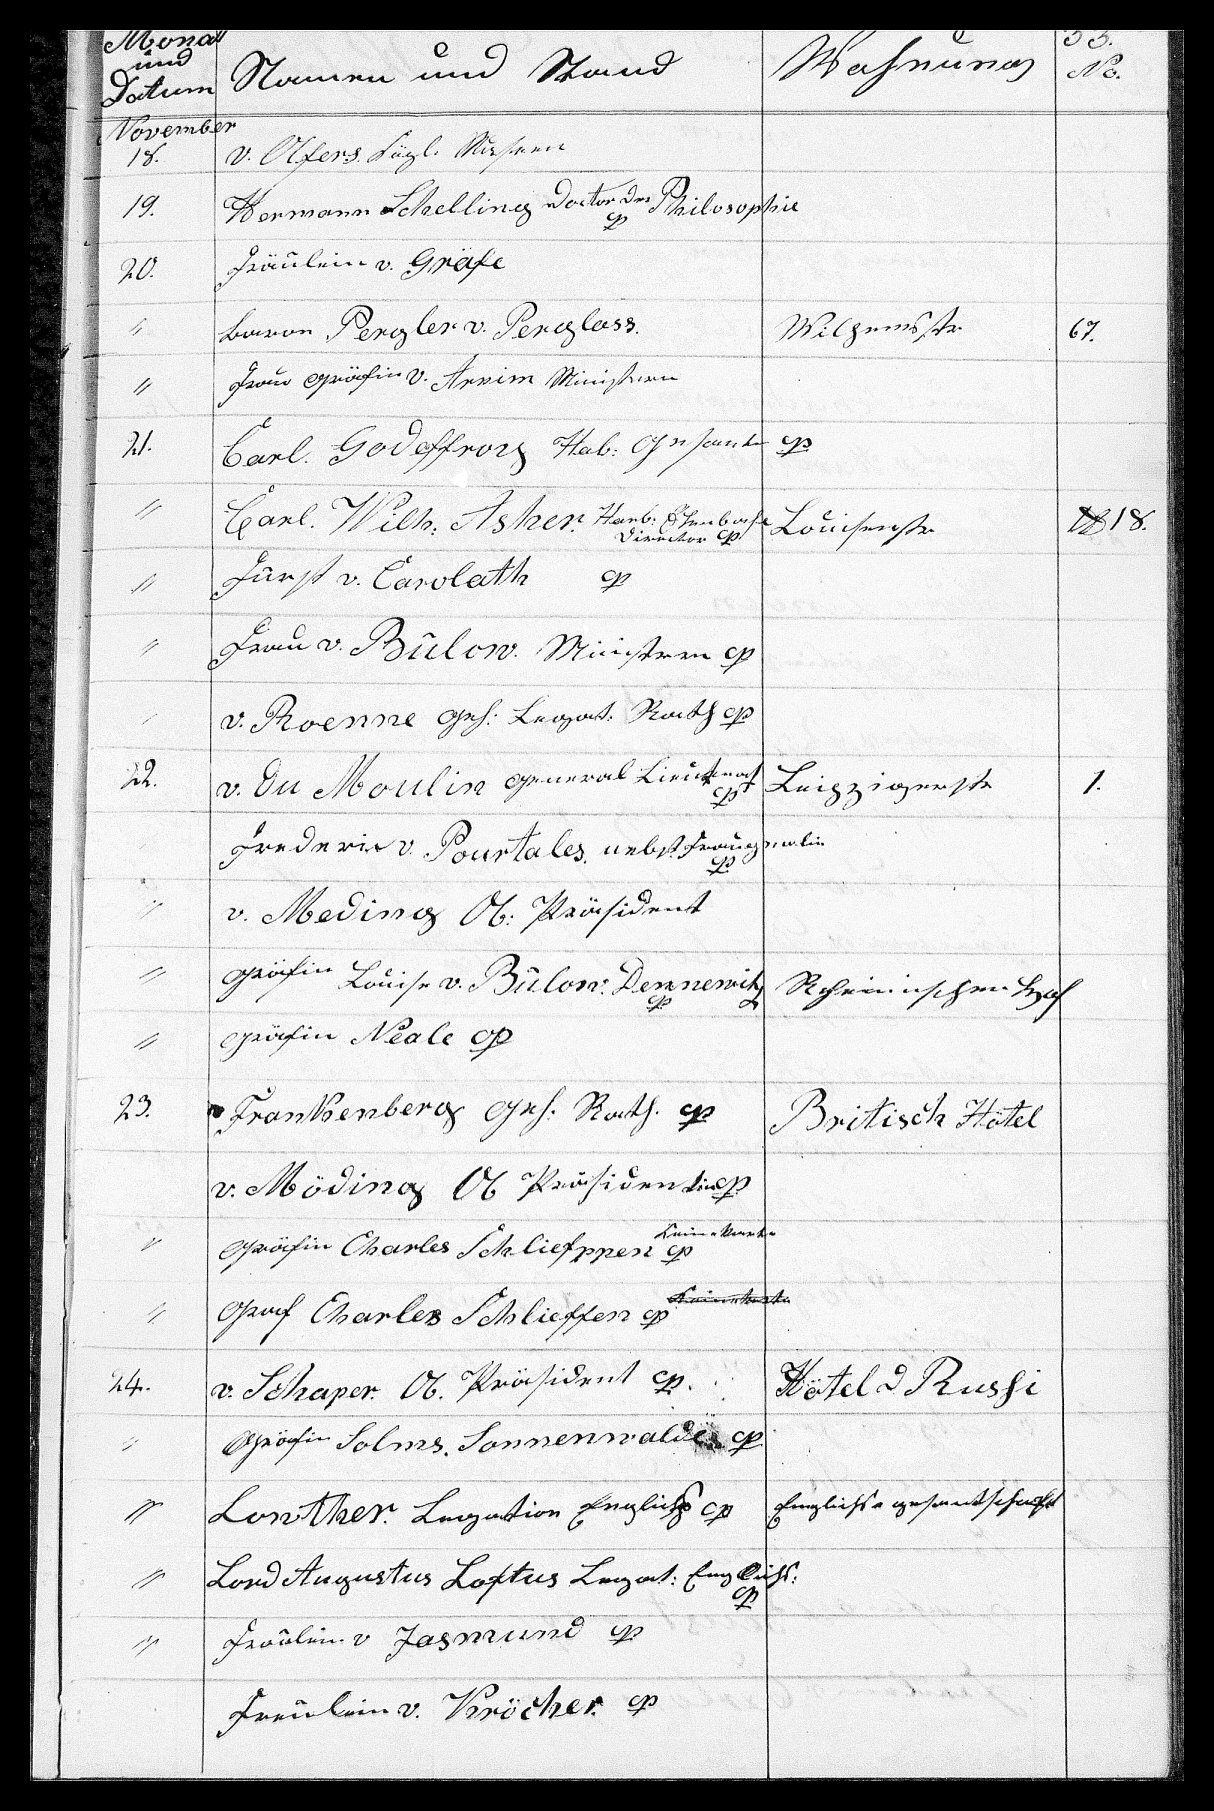 Monat und Datum Namen und Stand Wohnung No.
November
18. v. Olfers. Kögl. Museen
19. Hermann Schelling Doctor der Philosophie cp
20. Fräulein v. Gräfe
" Baron Pergler v. Perglass. Wilhemsstr 67.
" Frau Gräfin v. Arnim Ministern
21. Carl. Godeffroy Hab: Gesante cp
" Carl. Wilh. Asher. Hanb: Director cp Louisenstr 18.
" Fürst v. Carolath cp
" Frau v. Bülow. Ministern cp
v. Roenne Geh: Legat: Rath cp
22. v. du Moulin General Lieutenat cp Leipzigerstr 1.
Frederic v. Pourtales. nebst Fraugmalin cp
" v. Meding Ob: Präsident
" Gräfin Louise v. Bülow: Dennewitz cp Rheinischen Hof
" Gräfin Neale cp
23. Frankenberg Geh. Rath. cp Britisch Hôtel
v. Möding Ob Präsidentin cp
" Gräfin Charles Schlieffpen cp Keine Karte
" Graf Charles Schlieffen cp Keine Karte
24. v. Schaper. Ob. Präsident cp. Hôtel d Russi
" Gräfin Solms. Sonnenwalde cp
" Lowther. Legation Englich cp Englichse gesantschacht
" Lord Augustus Loftus Legat: Englichs: cp
" Fräulein v Jasmund cp
Freulein v. Kröcher. cp